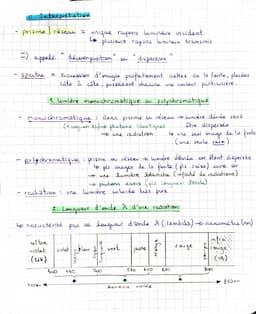 c. Interprétation
- prisme / réseau = unique rayon lumière incident
↳ plusieurs rayons lumière transmis
=> appelé "décomposition" ou "dispersion"
- spectre = succession d'images parfaitement nettes de la fente, placées
côte à côte, possédant chacune une couleur particulière.
1. Lumière monochromatique ou polychromatique
- monochromatique : dans prisme ou réseau → lumière déviée sans
être dispersée
photons identiques
→ une radiation
→ une seul image de la fente
(une seule raie)
- polychromatique : prisme ou réseau → lumière déviée en étant dispersée
→ pls images de la fente (pls raies) avec en
une lumière blanche (infinité de radiations)
→ photons divers (pls longueurs d'onde)
- radiation : une lumière colorée dite pure
2. Longueur d'onde d'une radiation
↳ caractérisé par sa longueur d'onde λ (lambda) → nanomètre (nm)
ultra violet (UV) violet bleu vert jaune orange rouge infra rouge (IR)
400 500 800
domaine visible